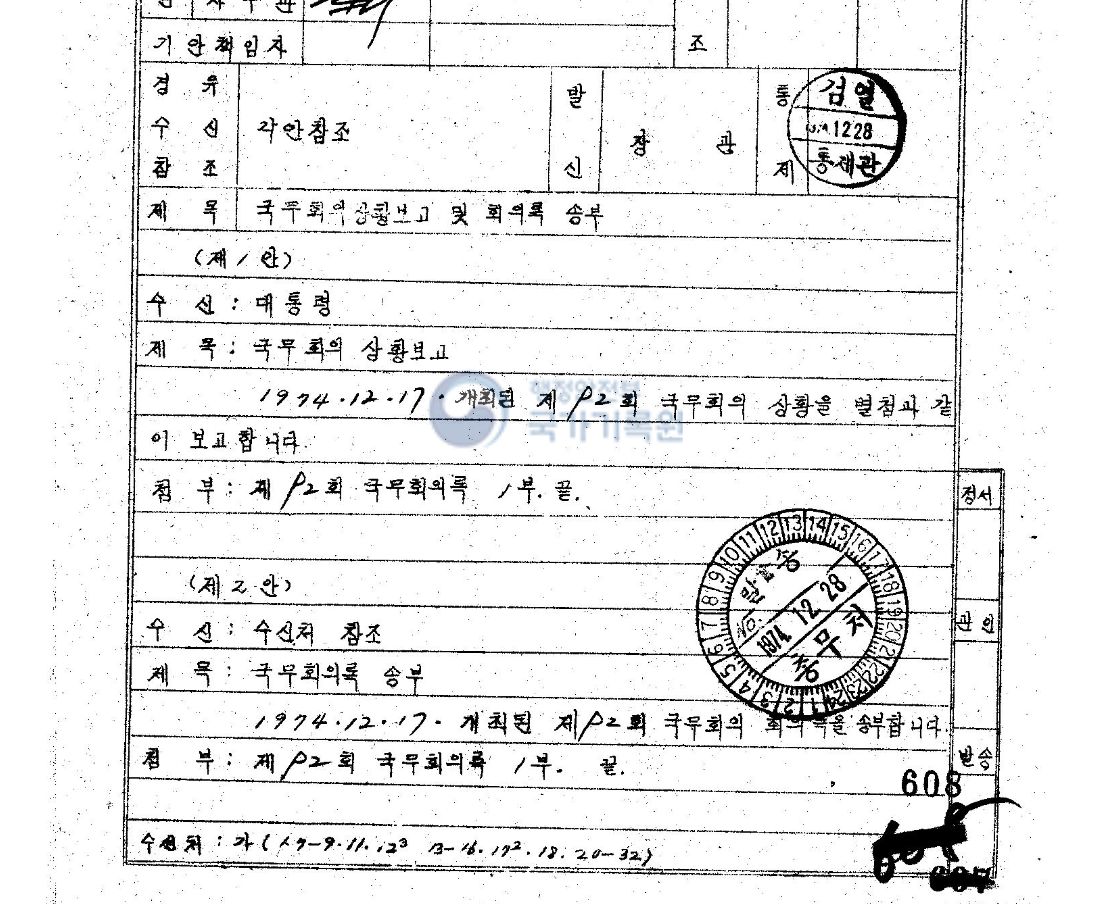 기안책임자
조
경 유
수 신 각안참조
참 조
발 신
장 관
통 제
검열
1228
통제관
제 목 국무회의상황보고 및 회의록 송부
(제1안)
수 신 : 대통령
제 목 : 국무회의 상황보고
1974.12.17. 개최된 제92회 국무회의 상황을 별첨과 같
이 보고합니다.
행정안전부
국가기록원
첨 부 : 제92회 국무회의록 1부. 끝.
정서
(제2안)
수 신 : 수신처 참조
관인
제 목 : 국무회의록 송부
1974.12.17. 개최된 제92회 국무회의 회의록을 송부합니다.
첨 부 : 제92회 국무회의록 1부. 끝.
발송
1 2 3 4 5 6 7 8 9 10 11 12 13 14 15 16 17 18 19 20 21 22 23 24
발송
NO.
1974. 12. 28
총무처
608
수신처 : 가
607